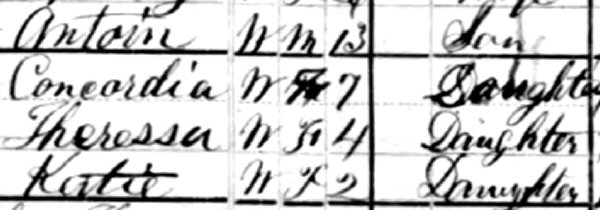 Antoin W M 13 Son
Concordia W F 7 Daughter
Theressa W F 4 Daughter
Katie W F 2 Daughter